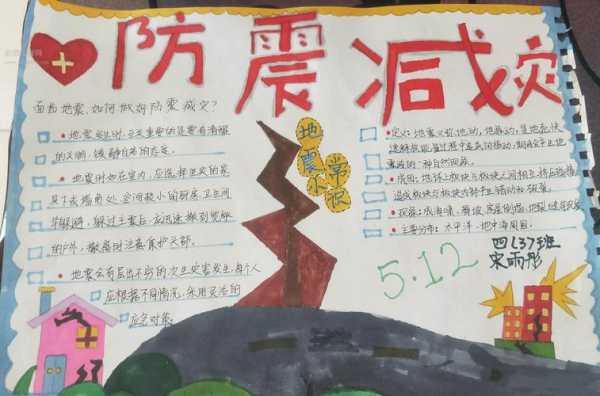 防震减灾
面对地震,如何做好防震减灾?
地震发生时,至关重要的是要有清醒
的头脑,镇静自若的态度。
地震时如在室内,应选择坚实的家
具下或墙角处,空间较小的厨房、卫生间
等躲避,躲过主震后,应迅速撤到宽敞
的户外,撤离时注意保护头部。
地震会有层出不穷的次生灾害发生,每个人
应根据不同情况,采用灵活的
应急对策。
地震小常识
定义:地震又称地动、地振动,是地壳快
速释放能量过程中造成的振动,期间会产生地
震波的一种自然现象。
成因:地球上板块与板块之间相互挤压碰撞
造成板块与板块边缘产生错动和破裂。
灾害:
主要分布:太平洋、地中海周围
5.12
四(3)班
宋雨彤